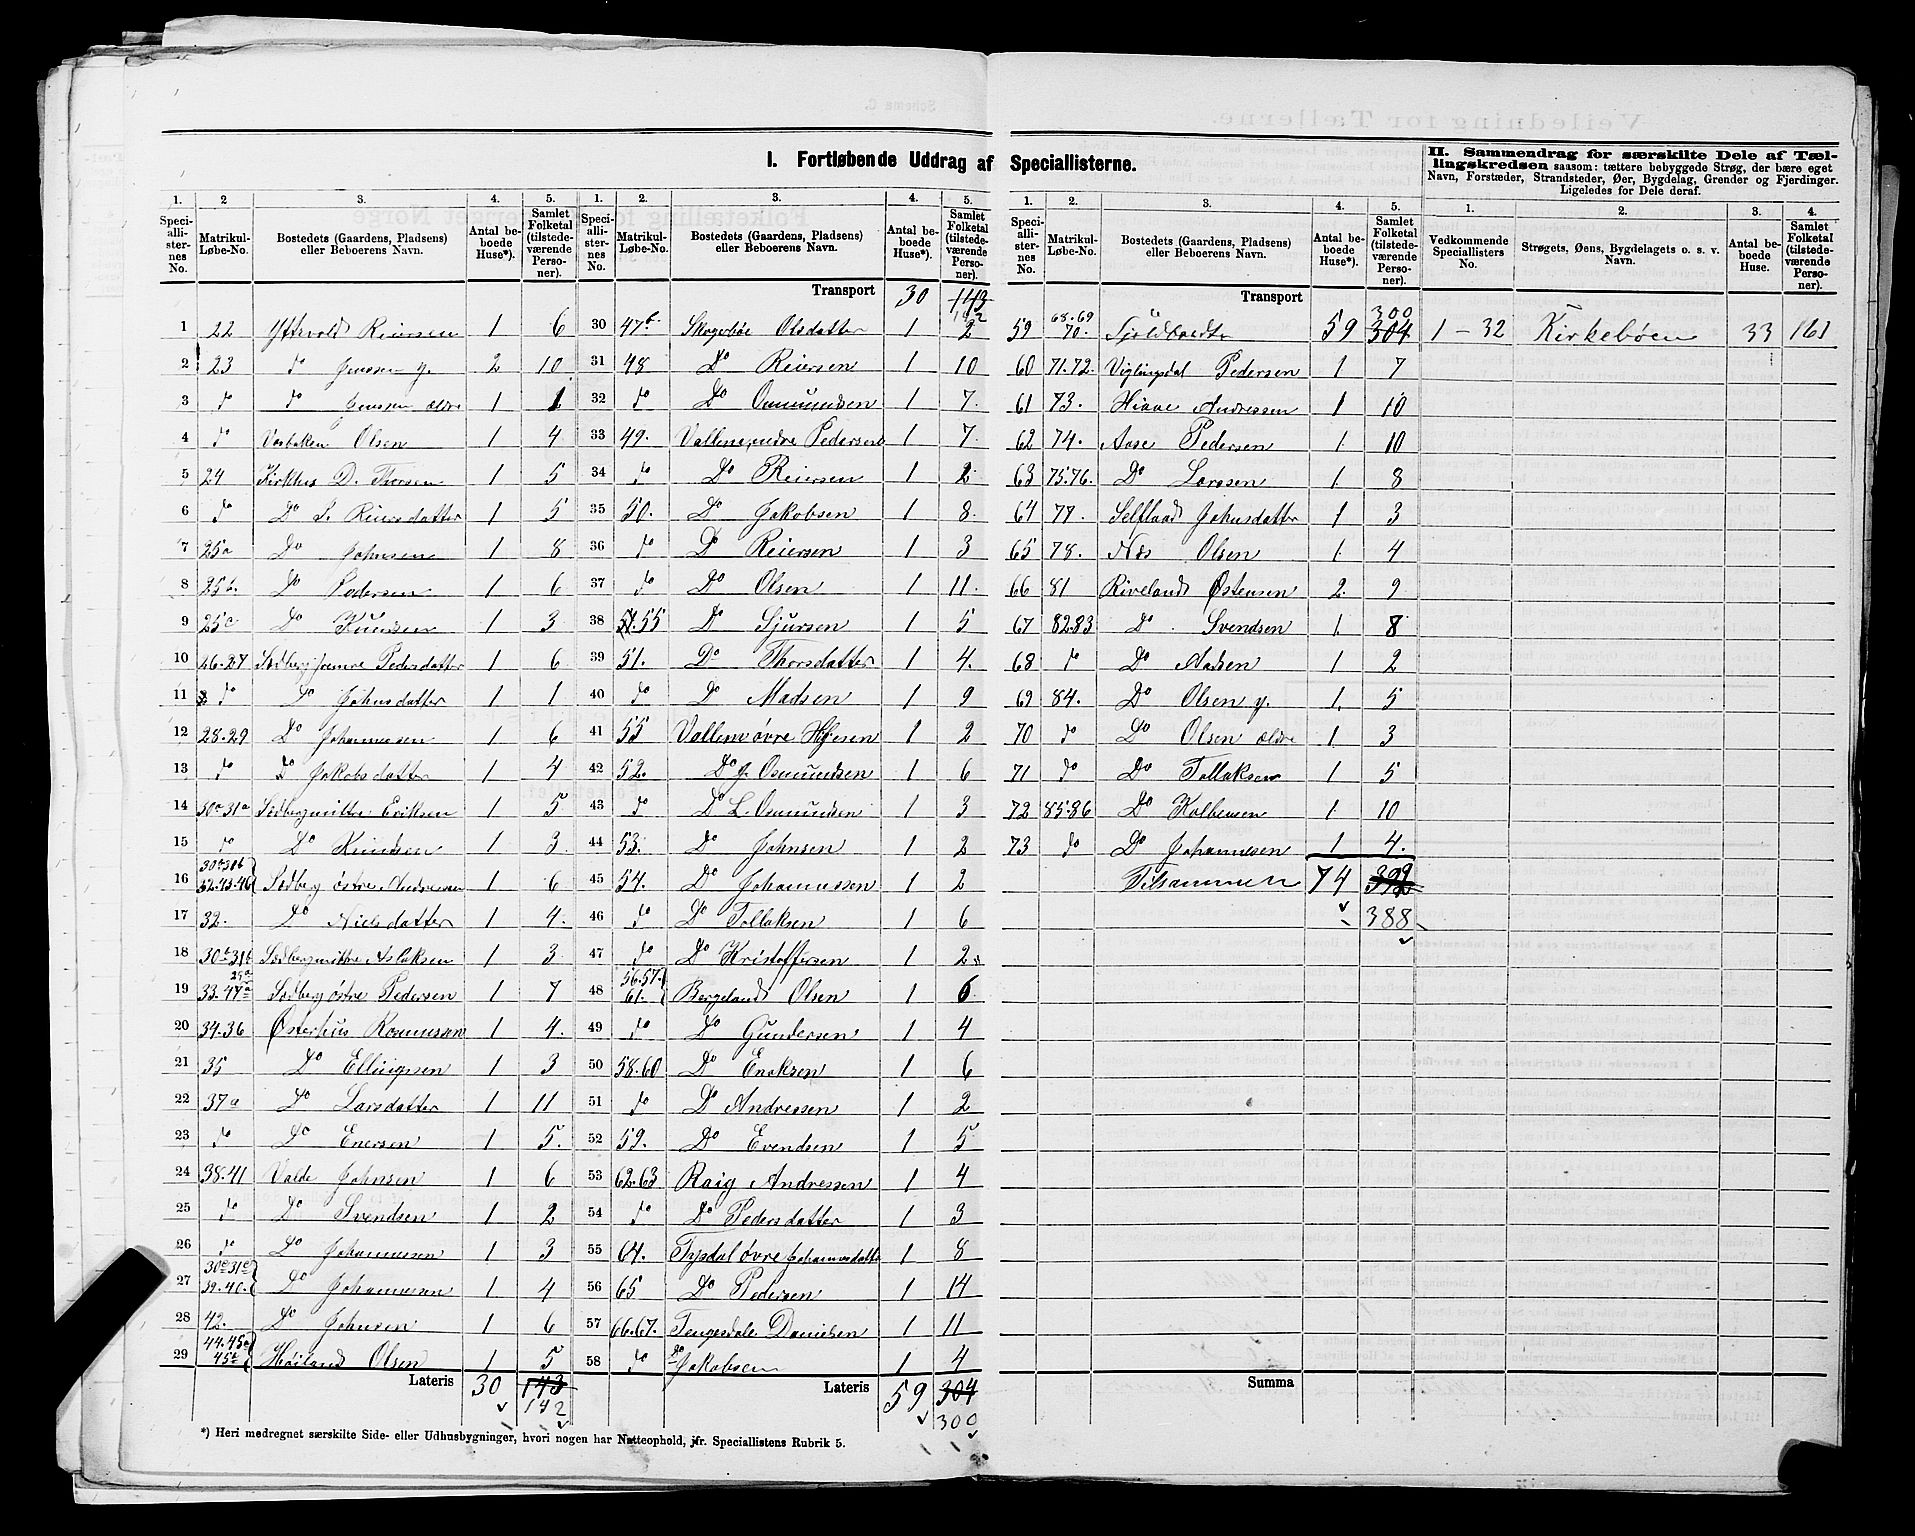 I. Fortløbende Uddrag af Speciallisterne.
II. Sammendrag for særskilte Dele af Tællingskredsen saasom: tættere bebyggede Strøg, der bære eget
Navn, Forstæder, Strandsteder, Øer, Bygdelag, Grender og Fjerdinger.
Ligeledes for Dele deraf.
1. 2 3. 4. 5.
Speciallisternes No. Matrikul-Løbe-No. Bostedets (Gaardens, Pladsens) eller Beboerens Navn. Antal beboede Huse*). Samlet Folketal (tilstedeværende Personer).
1 22 Reiersen 1 6
2 23 do Jenssen y. 2 10
3 do do Jenssen ældre 1 1
4 do Olsen 1 4
5 24 Kirkhus D. Thorsen 1 5
6 do Do Reiersdatter 1 5
7 25a Do Johnsen 1 8
8 25b. Do Pedersen 1 6
9 25c Do Knudsen 1 3
10 26.27 Sødberg fremre Pedersdatter 1 6
11 do Do Johnsdatter 1 1
12 28.29 Do Johannesen 1 6
13 do Do Jakobsdatter 1 4
14 30a 31a Sødberg mittre Eriksen 1 5
15 do Do Knudsen 1 3
16 30b 31b 32.43.46 Sødberg østre Andressen 1 6
17 32. Do Nielsdatter 1 4.
18 30b 31b Sødberg mittre Aslaksen 1 3
19 33.47a Sødberg østre Pedersen 1 7
20 34.36 Østerhus Rasmussen 1 4.
21 35 Do Ellingsen 1 3
22 37a Do Larsdatter 1 11
23 do Do Enersen 1 5.
24 38.41 Valde Johnsen 1 6
25 do Do Svendsen 1 2
26 do Do Johannesen 1 3
27 30c 31c 39.40. Do Johannesen 1 4
28 42. Do Johnsen 1 6
29 44.45a 45b Høiland Olsen 1 5
Lateris 30 143
142
1. 2. 3. 4. 5.
Speciallisternes No. Matrikul-Løbe-No. Bostedets (Gaardens, Pladsens) eller Beboerens Navn. Antal beboede Huse*). Samlet Folketal (tilstedeværende Personer).
Transport 30 143
142
30 47b Olsdatter 1 2
31 48 Do Reiersen 1 10
32 do Do Osmundsen 1 7.
33 49. Vallene nedre Pedersen 1 7
34 do Do Reiersen 1 2
35 50. Do Jakobsen 1 8.
36 do Do Reiersen 1 3
37 do Do Olsen 1 11.
38 51.55 Do Sjursen 1 5
39 51. Do Thorsdatter 1 4.
40 do Do Madsen 1 9
41 55 Vallene øvre 1 2
42 52. Do J. Osmundsen 1 6
43 do Do L. Osmundsen 1 3
44 53. Do Johnsen 1 2
45 54. Do Johannessen 1 2
46 do Do Tollaksen 1 6
47 do Do Kristoffersen 1 2
48 56.57. 61. Bergeland Olsen 1 6
49 do Do Gundersen 1 4
50 58.60 Do Enoksen 1 6
51 do Do Andressen 1 2
52 59. Do Evendsen 1 5
53 62.63 Raig Andressen 1 4
54 do Do Pedersdatter 1 3
55 64. Tysdal øvre Johannesdatter 1 8
56 65 Do Pedersen 1 14
57 66.67. Tengesdale Danielsen 1 11
58 do do Jakobsen 1 4
Lateris 59 304
300
*) Heri medregnet særskilte Side- eller Udhusbygninger, hvori nogen har Natteophold, jfr. Speciallistens Rubrik 5.
1. 2. 3. 4. 5.
Speciallisternes No. Matrikul-Løbe-No. Bostedets (Gaardens, Pladsens) eller Beboerens Navn. Antal beboede Huse*). Samlet Folketal (tilstedeværende Personer).
Transport 300
59 68.69 70. 59 304
60 71.72. Viglingsdal Pedersen 1 7
61 73. Hiaae Andressen 1 10
62 74. Aase Pedersen 1 10
63 75.76. Do Larssen 1 8
64 77. Selfland Johnsdatter 1 3
65 78. Næs Olsen 1 4
66 81 Riveland Østensen 2 9
67 82.83 Do Svendsen 1 8
68 do Do Aadsen 1 2
69 84. Do Olsen y. 1 5
70 do Do Olsen ældre 1 3
71 do Do Tollaksen 1 5
72 85.86 Do Kolbensen 1 10
73 do Do Johannesen 1 4.
Tilsammen 74 392
388
Summa
1. 2. 3. 4.
Vedkommende Speciallisters No. Strøgets, Øens, Bygdelagets o. s. v. Navn. Antal beboede Huse. Samlet Folketal (tilstedeværende Personer).
1 - 32 Kirkebøen 33 161